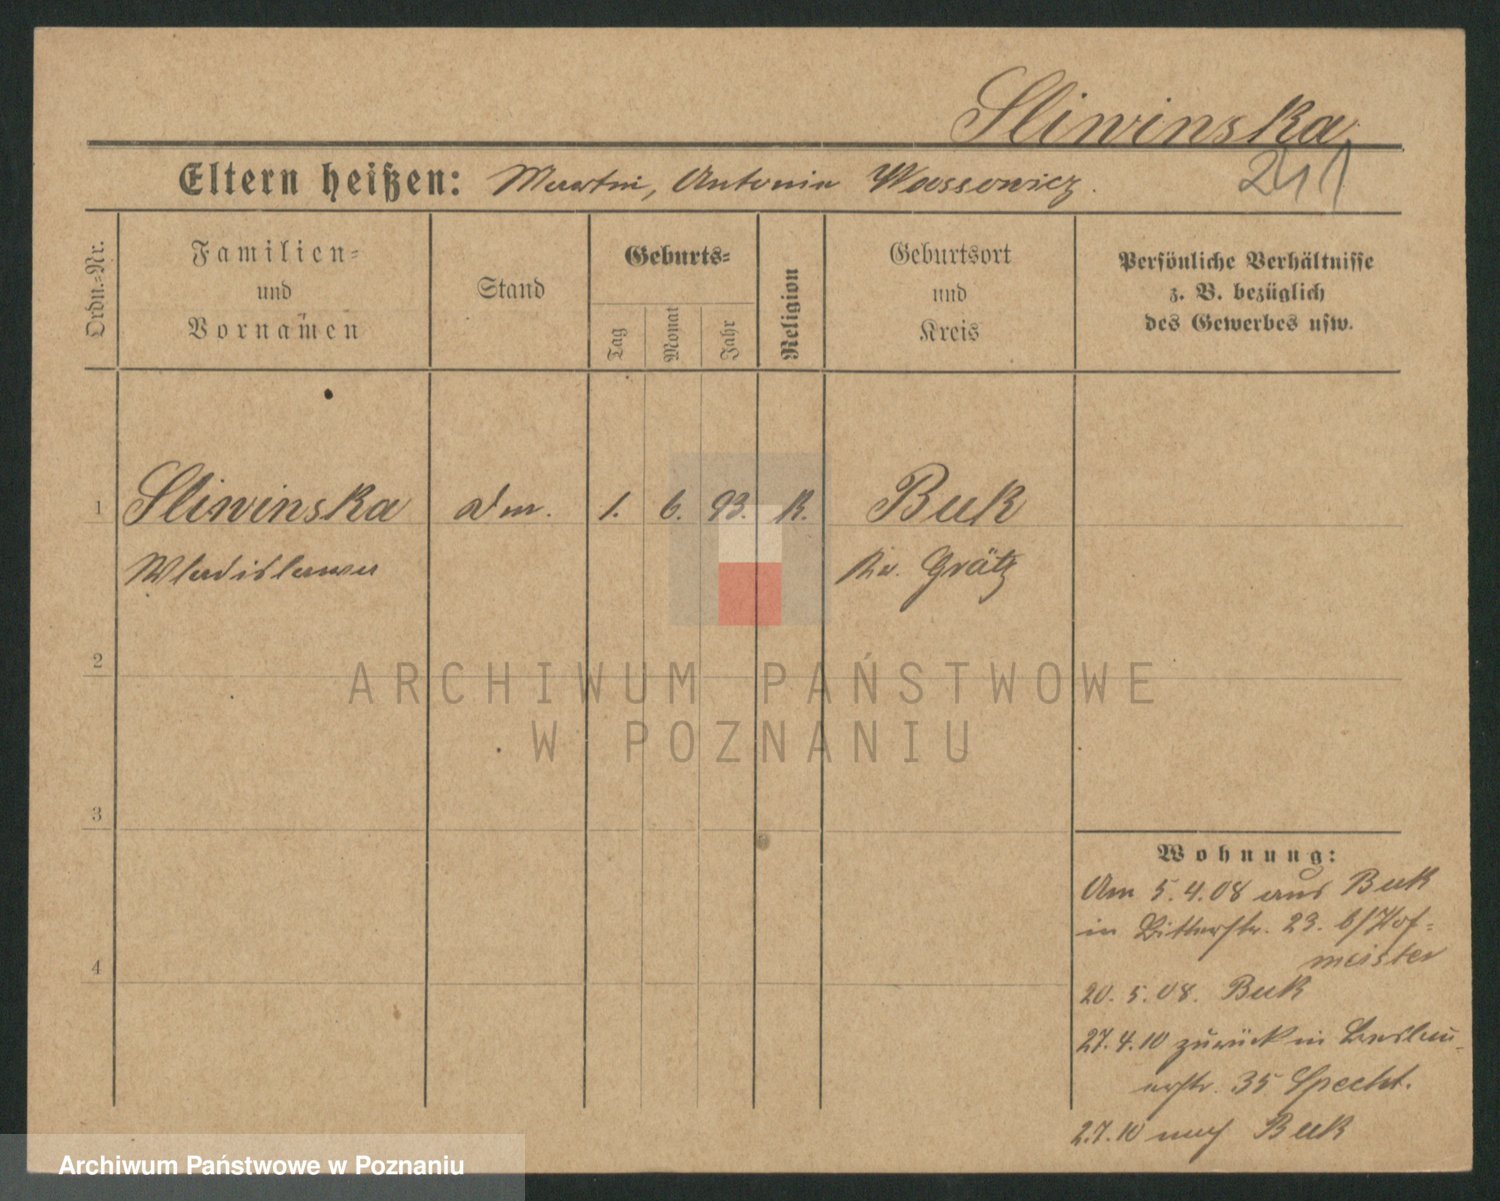 Sliwinska
211
Eltern heißen: Martin, Antonia Wossowicz.
Ordn.-Nr.
Familien-
und
Vornamen
Stand
Geburts-
Tag
Monat
Jahr
Religion
Geburtsort
und
Kreis
Persönliche Verhältnisse
z. B. bezüglich
des Gewerbes usw.
1 Sliwinska 1. 6. 93. K. Buk
Wladislawa Kr. Grätz
2
3
4
Wohnung:
Am 5.4.08 aus Buk
in Ritterstr. 23. b/Hof-
meister
20. 5. 08. Buk
27.4.10 zurück in Breslau-
erstr. 35 Specht.
2.7.10 nach Buk
ARCHIWUM PAŃSTWOWE
W POZNANIU
Archiwum Państwowe w Poznaniu